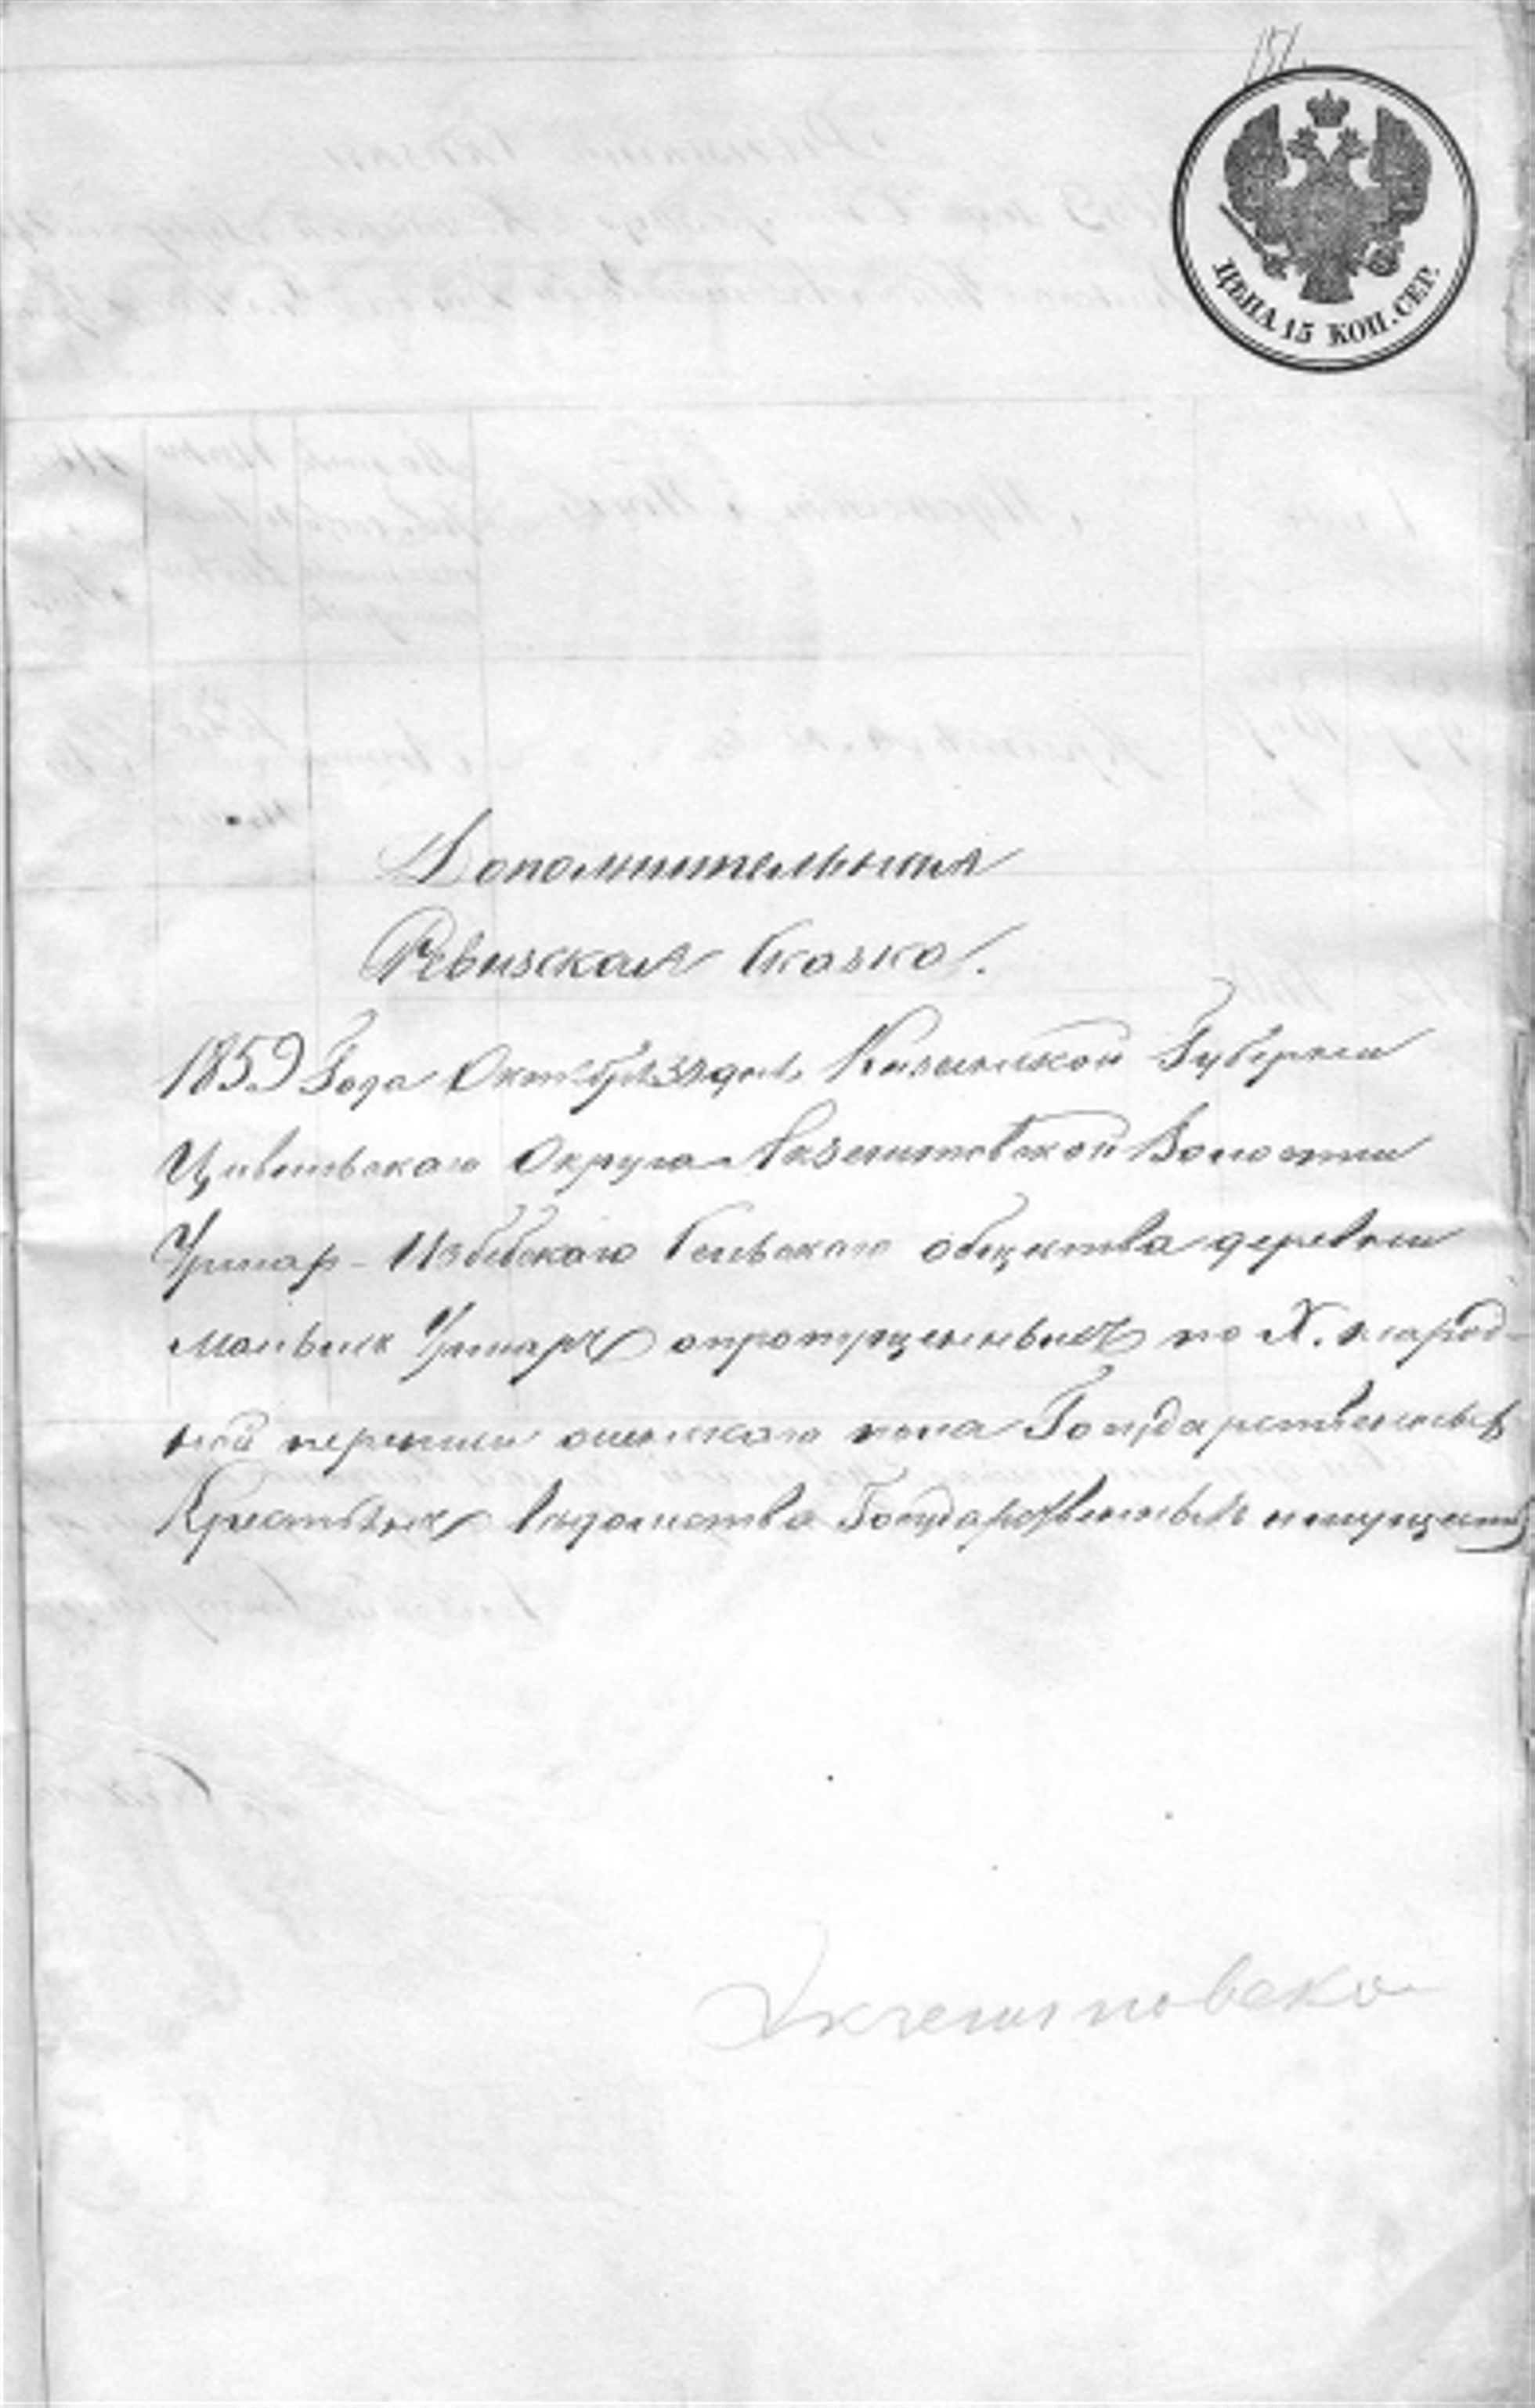 151.
ЦѢНА 15 КОП. СЕР.
Дополнительная
Ревизская Сказка.
1859 Года Октября дня, Казанской Губернии
Цивильскаго Округа Акзегитовской Волости
Урмар-Избебскаго Сельскаго общества деревни
Малыхъ Урмаръ о пропущенныхъ по X. народ-
ной переписи женскаго пола Государственныхъ
Крестьянъ Ведомства Государственныхъ имуществъ
Акзегитовско